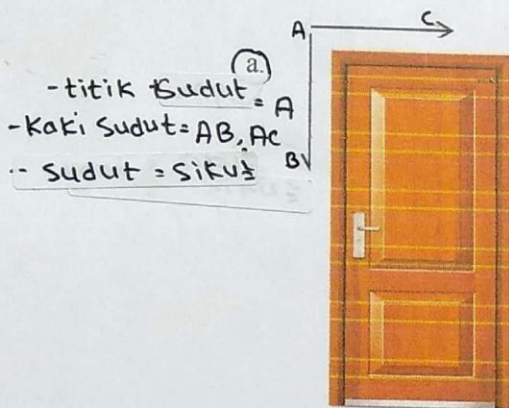 A C
a.
-titik sudut = A
-Kaki Sudut = AB, AC
- sudut = siku²
B